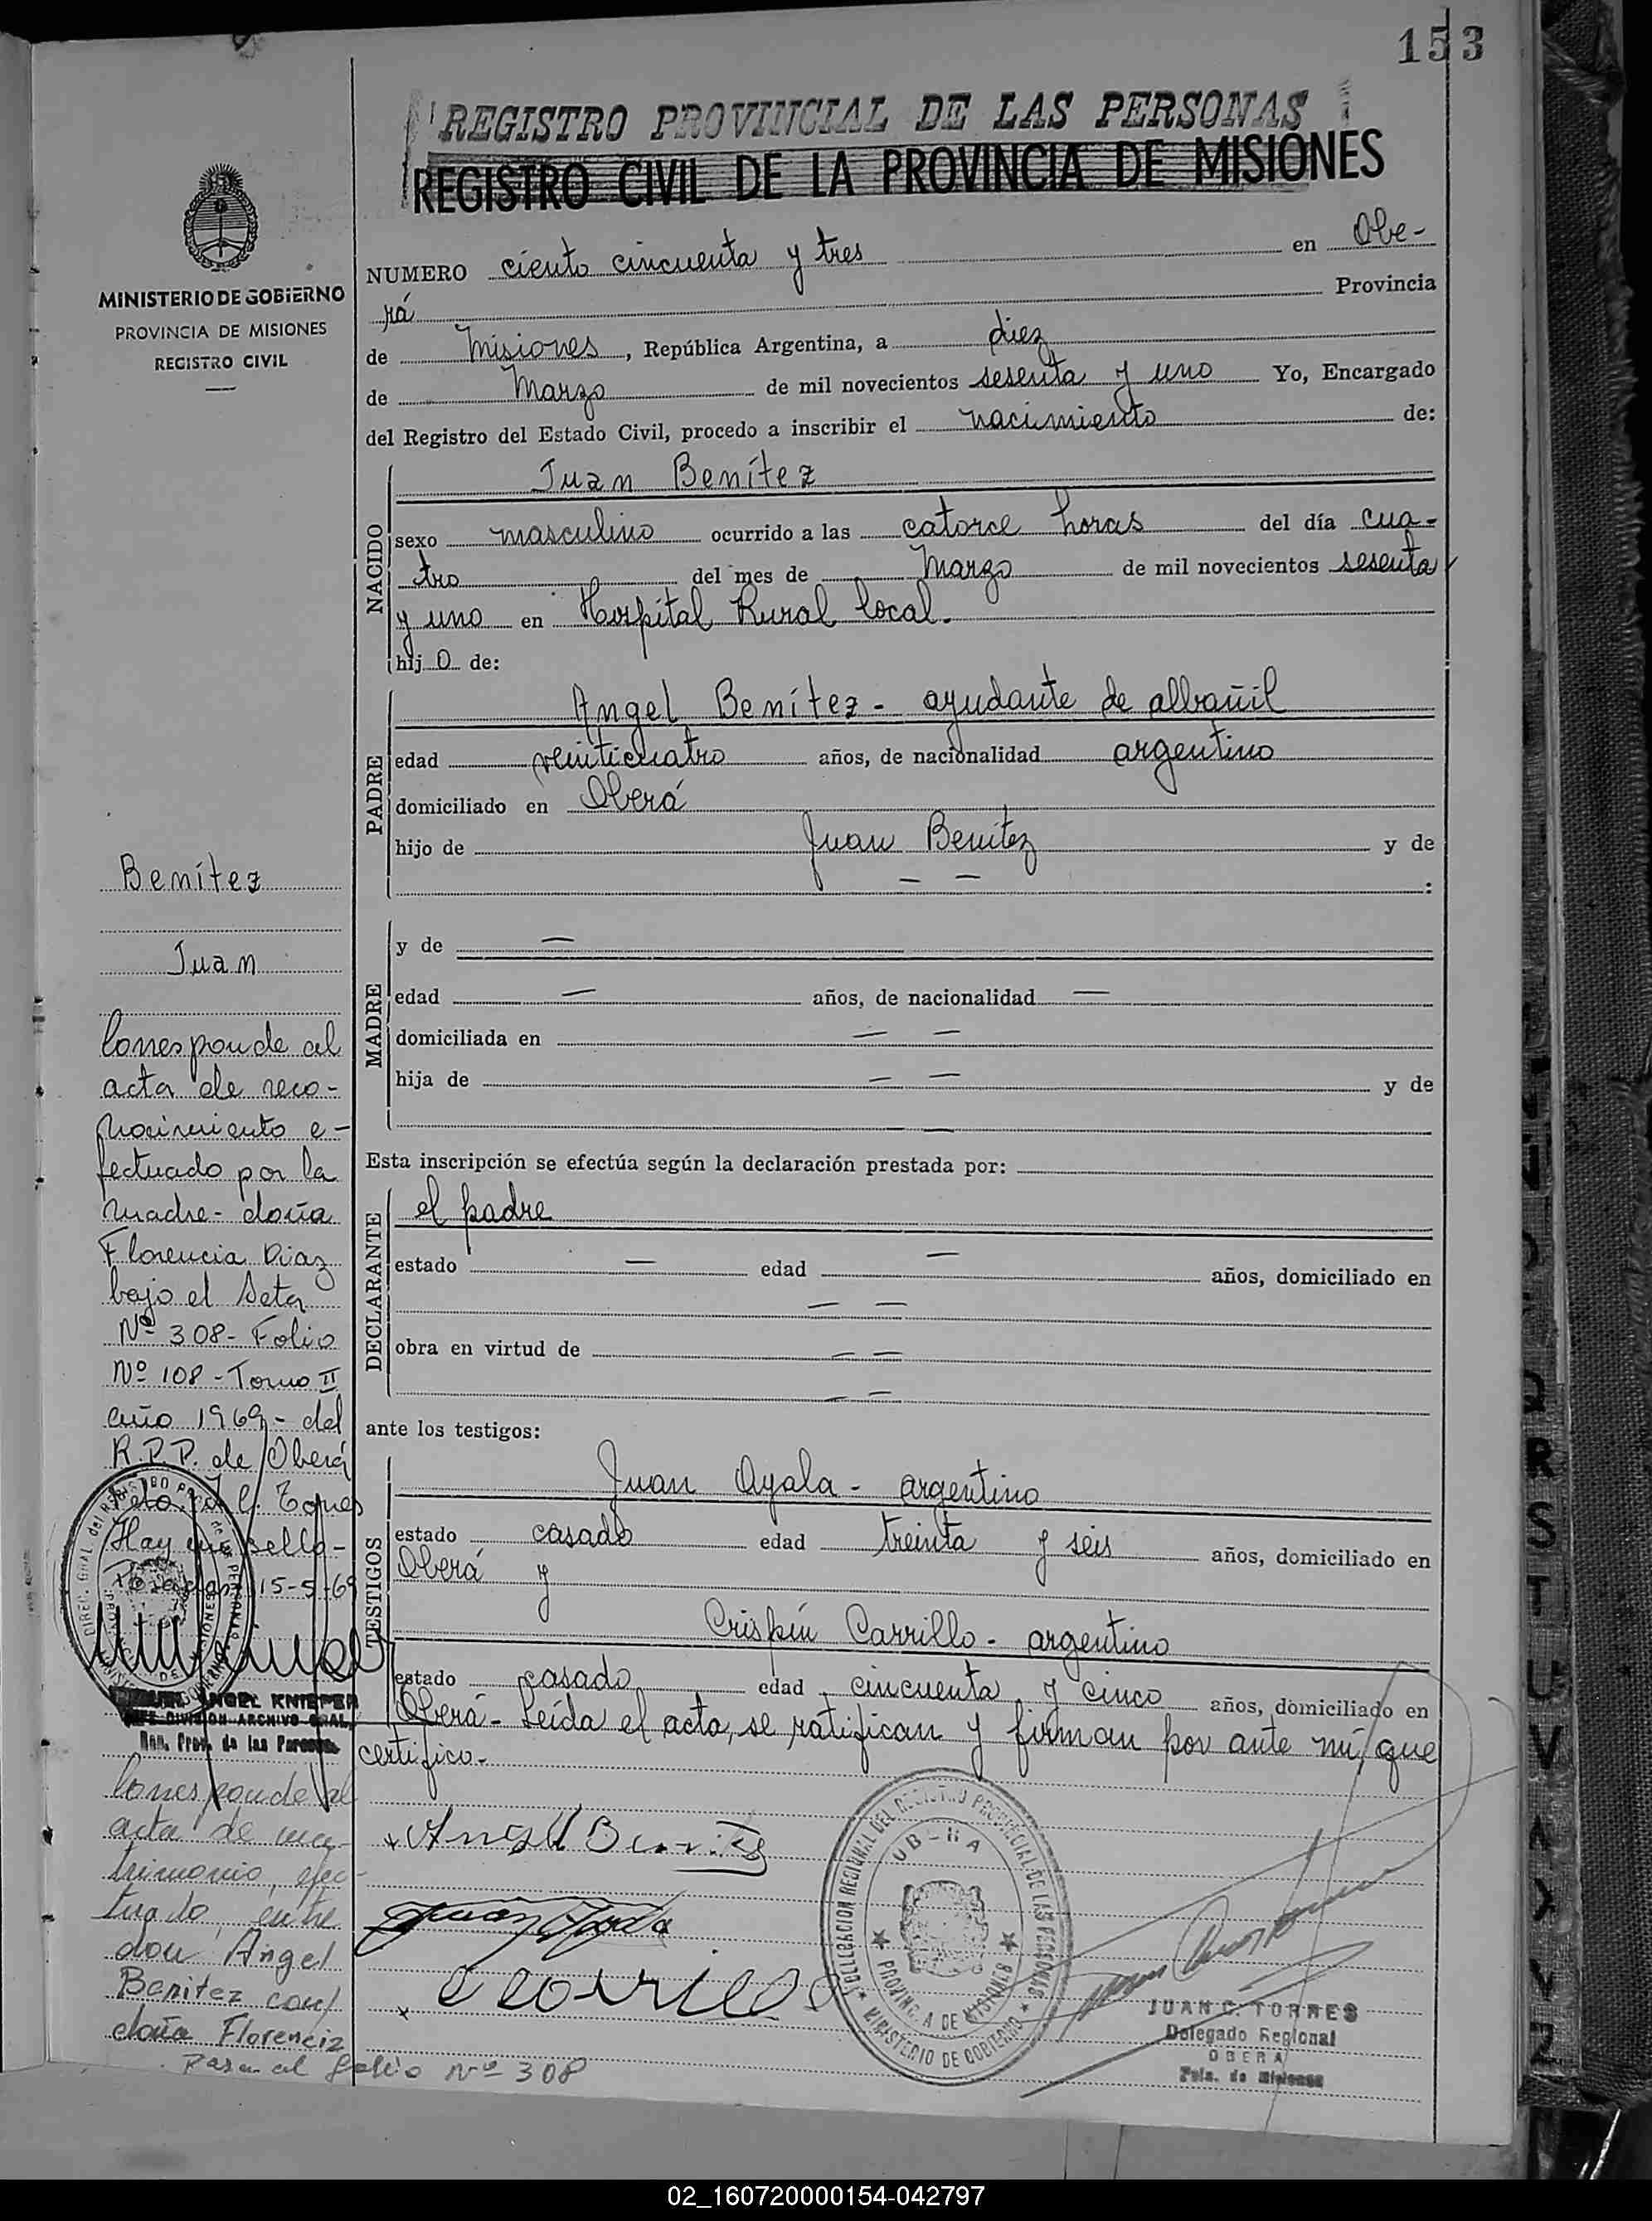 153
REGISTRO PROVINCIAL DE LAS PERSONAS
REGISTRO CIVIL DE LA PROVINCIA DE MISIONES
MINISTERIO DE GOBIERNO
PROVINCIA DE MISIONES
REGISTRO CIVIL
NUMERO ciento cincuenta y tres en Obe-
rá Provincia
de Misiones, República Argentina, a diez
de Marzo de mil novecientos sesenta y uno Yo, Encargado
del Registro del Estado Civil, procedo a inscribir el nacimiento de:
NACIDO
Juan Benítez
sexo masculino ocurrido a las catorce horas del día cua-
tro del mes de Marzo de mil novecientos sesenta
y uno en Hospital Rural local.
hijo de:
PADRE
Angel Benítez - ayudante de albañil
edad veinticuatro años, de nacionalidad argentino
domiciliado en Oberá
hijo de Juan Benítez y de
— — :
MADRE
y de —
edad — años, de nacionalidad —
domiciliada en — —
hija de — — y de
—
Esta inscripción se efectúa según la declaración prestada por:
DECLARANTE
el padre
estado — edad — años, domiciliado en
— —
obra en virtud de — —
— —
ante los testigos:
TESTIGOS
Juan Ayala - argentino
estado casado edad treinta y seis años, domiciliado en
Oberá y
Crispín Carrillo - argentino
estado casado edad cincuenta y cinco años, domiciliado en
Oberá - Leída el acta, se ratifican y firman por ante mí, que
certifico.-
Angel Benitez
Juan Ayala
C Carrillo
DELEGACION REGIONAL DEL REGISTRO PROVINCIAL DE LAS PERSONAS
OBERA
PROVINCIA DE MISIONES
MINISTERIO DE GOBIERNO
JUAN C. TORRES
Delegado Regional
OBERA
Pcia. de Misiones
Benítez
Juan
Corresponde al
acta de reco-
nocimiento e-
fectuado por la
madre - doña
Florencia Diaz
bajo el Acta
Nº 308 - Folio
Nº 108 - Tomo II
año 1969 - del
R.P.P. de Oberá
Torres
Hay un sello -
Posadas, 15-5-69
ANGEL KNIEPER
JEFE DIVISION ARCHIVO GRAL.
Reg. Prov. de las Personas
Corresponde al
acta de ma-
trimonio, efec-
tuado, entre
don Angel
Benitez con
doña Florencia
Pasa al folio Nº 308
Q
R
S
T
U
V
Z
02_160720000154-042797